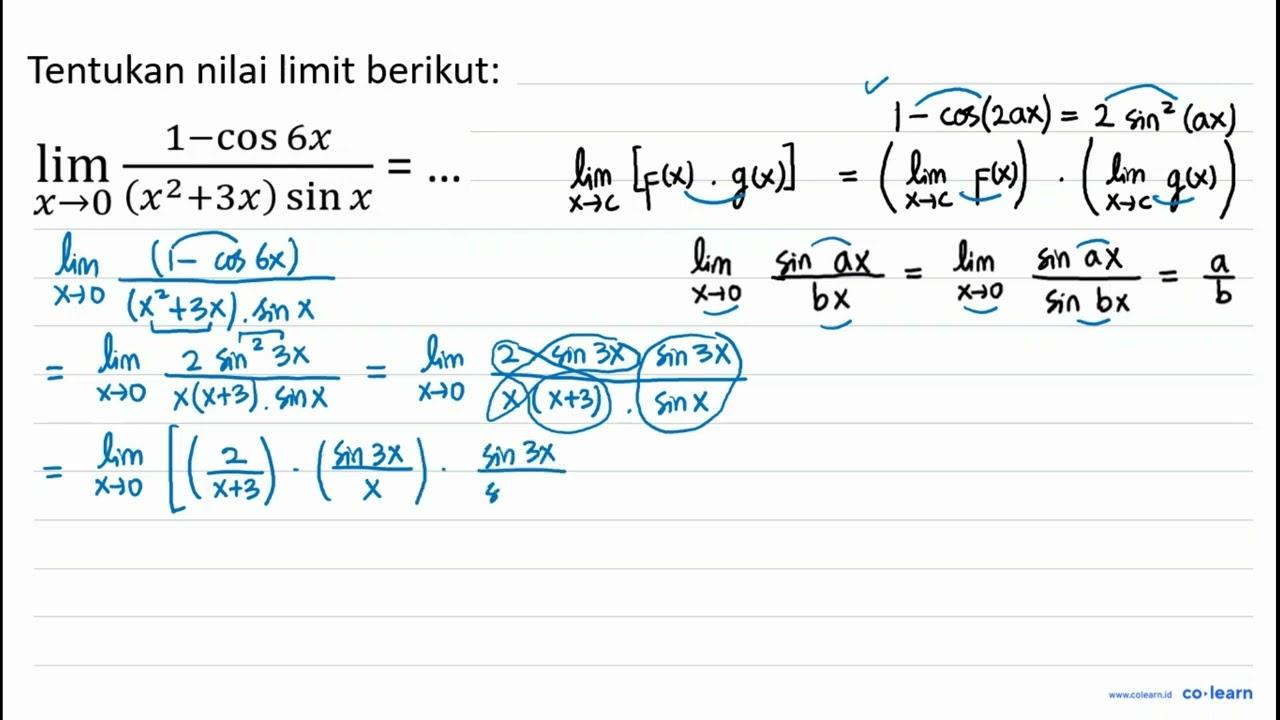 Tentukan nilai limit berikut:
lim x→0 (1−cos 6x)/((x²+3x) sin x) = ...
✓ 1 − cos(2ax) = 2 sin² (ax)
lim x→c [F(x) . g(x)] = (lim x→c F(x)) . (lim x→c g(x))
lim x→0 (1 − cos 6x)/((x²+3x) . sin x)
lim x→0 sin ax/bx = lim x→0 sin ax/sin bx = a/b
= lim x→0 2 sin² 3x/(x(x+3) . sin x) = lim x→0 2 sin 3x sin 3x/(x (x+3) . sin x)
= lim x→0 [(2/(x+3)) . (sin 3x/x) . sin 3x/s
www.colearn.id co·learn